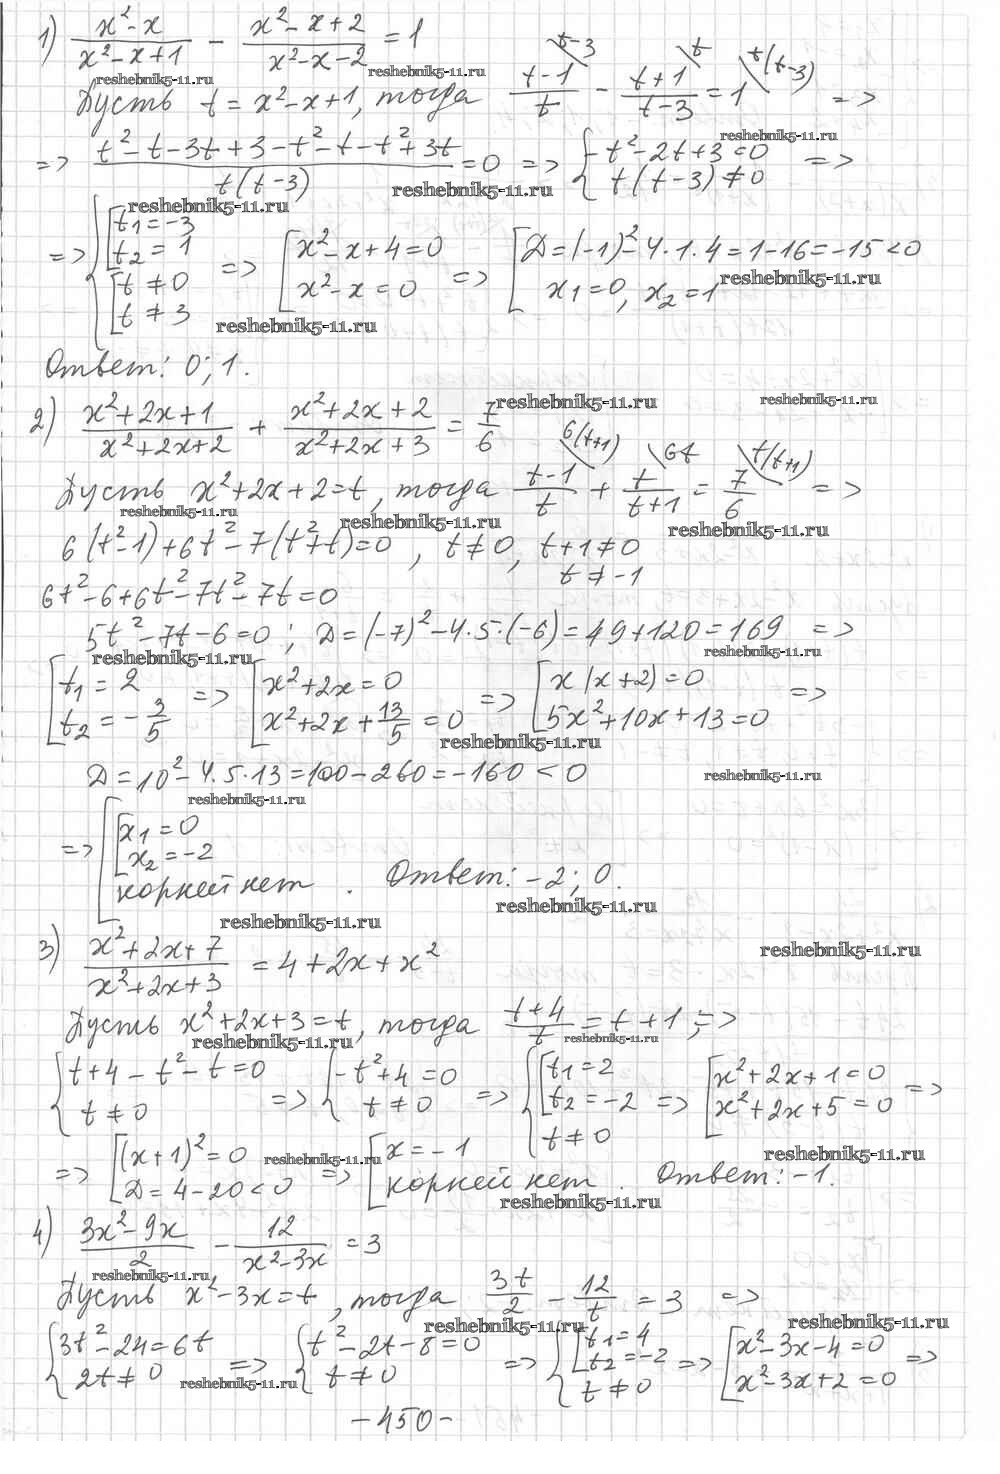 1) (x²-x)/(x²-x+1) - (x²-x+2)/(x²-x-2) = 1
reshebnik5-11.ru reshebnik5-11.ru
Пусть t = x²-x+1, тогда (t-1)/t \t-3 - (t+1)/(t-3) \t = 1 \t(t-3) =>
reshebnik5-11.ru
=> (t²-t-3t+3-t²-t-t²+3t)/(t(t-3)) = 0 => { -t²-2t+3=0 =>
t(t-3)≠0
reshebnik5-11.ru reshebnik5-11.ru
=> { [ t₁=-3
t₂=1
[ t≠0
t≠3
=> [ x²-x+4=0
x²-x=0
=> [ D=(-1)²-4·1·4=1-16=-15<0
x₁=0, x₂=1
reshebnik5-11.ru
reshebnik5-11.ru
Ответ: 0; 1.
2) (x²+2x+1)/(x²+2x+2) + (x²+2x+2)/(x²+2x+3) = 7/6
reshebnik5-11.ru reshebnik5-11.ru
Пусть x²+2x+2=t, тогда (t-1)/t \6(t+1) + t/(t+1) \6t = 7/6 \t(t+1) =>
reshebnik5-11.ru reshebnik5-11.ru reshebnik5-11.ru
6(t²-1)+6t²-7(t²+t)=0, t≠0, t+1≠0
t≠-1
6t²-6+6t²-7t²-7t=0
5t²-7t-6=0; D=(-7)²-4·5·(-6)=49+120=169 =>
reshebnik5-11.ru reshebnik5-11.ru
[ t₁=2
t₂=-3/5
=> [ x²+2x=0
x²+2x+13/5=0
=> [ x(x+2)=0
5x²+10x+13=0
=>
reshebnik5-11.ru
D=10²-4·5·13=100-260=-160<0
reshebnik5-11.ru
reshebnik5-11.ru
=> [ [ x₁=0
x₂=-2
корней нет. Ответ: -2; 0.
reshebnik5-11.ru reshebnik5-11.ru
3) (x²+2x+7)/(x²+2x+3) = 4+2x+x²
reshebnik5-11.ru
Пусть x²+2x+3=t, тогда (t+4)/t = t+1; =>
reshebnik5-11.ru reshebnik5-11.ru
{ t+4-t²-t=0
t≠0
=> { -t²+4=0
t≠0
=> { [ t₁=2
t₂=-2
t≠0
=> [ x²+2x+1=0
x²+2x+5=0
=>
reshebnik5-11.ru
=> [ (x+1)²=0
D=4-20<0
reshebnik5-11.ru
=> [ x=-1
корней нет. Ответ: -1.
reshebnik5-11.ru
4) (3x²-9x)/2 - 12/(x²-3x) = 3
reshebnik5-11.ru
Пусть x²-3x=t, тогда 3t/2 - 12/t = 3 =>
reshebnik5-11.ru reshebnik5-11.ru
{ 3t²-24=6t
2t≠0
=> { t²-2t-8=0
t≠0
=> { [ t₁=4
t₂=-2
t≠0
=> [ x²-3x-4=0
x²-3x+2=0
=>
reshebnik5-11.ru
-450-